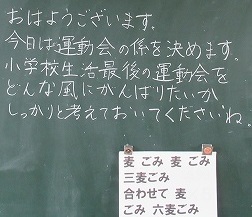 おはようございます。
今日は運動会の係を決めます。
小学校生活最後の運動会を
どんな風にがんばりたいか
しっかりと考えておいてくださいね。
麦 ごみ 麦 ごみ
三麦ごみ
合わせて 麦
ごみ 六麦ごみ